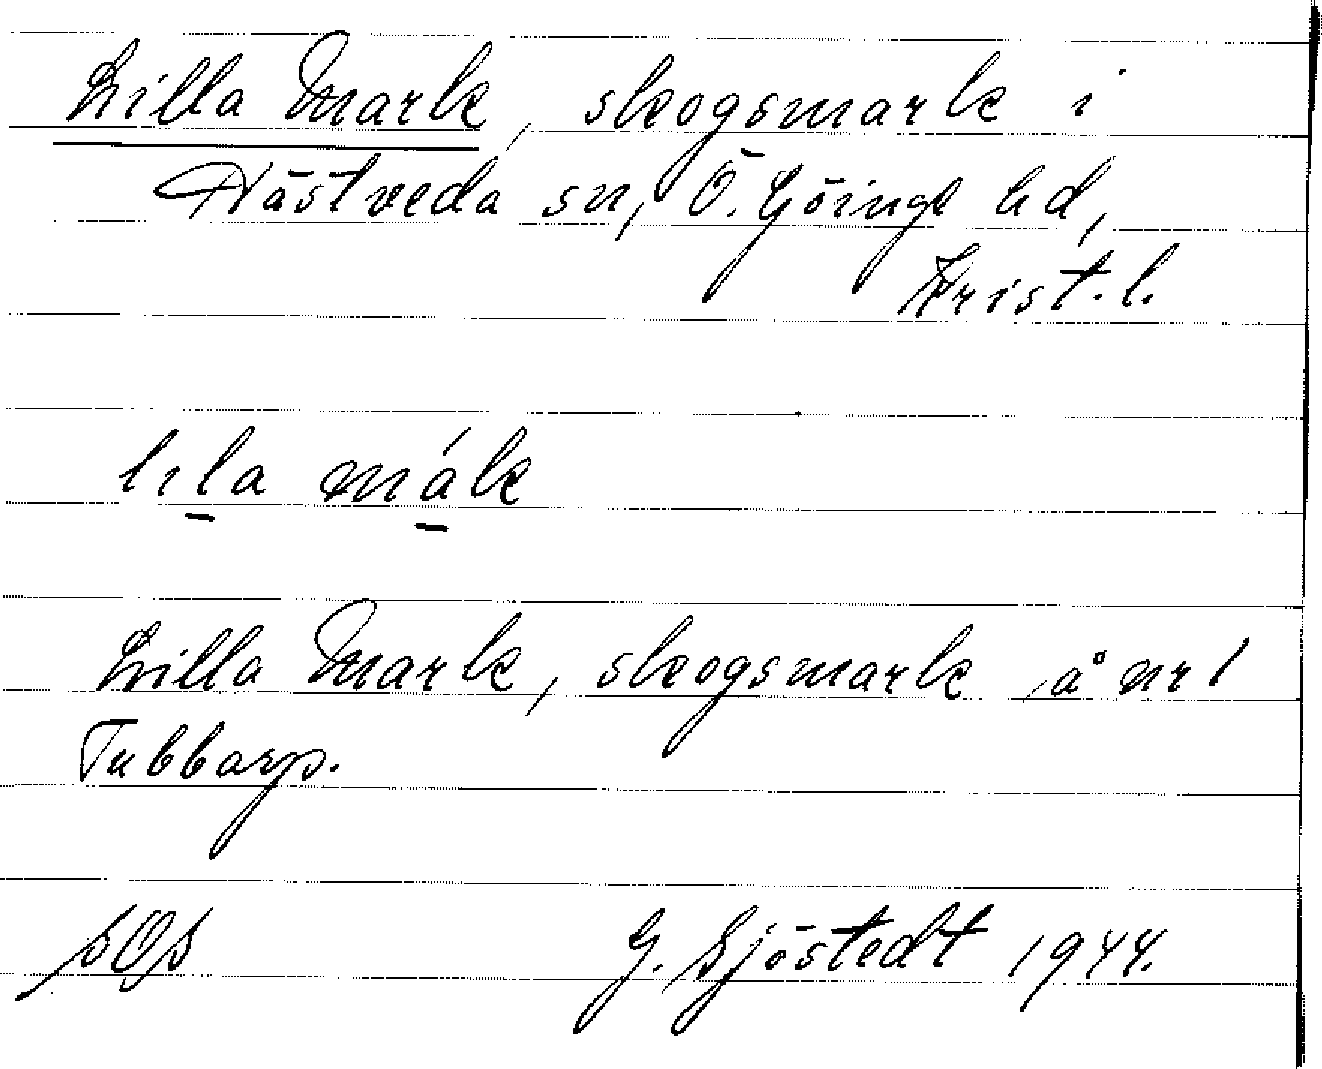 Lilla Mark, skogsmark i
Hästveda sn, Ö. Göinge hd,
Krist. l.
lila mák
Lilla Mark, skogsmark å nr 1
Tubbarp.
SOS G. Sjöstedt 1944.